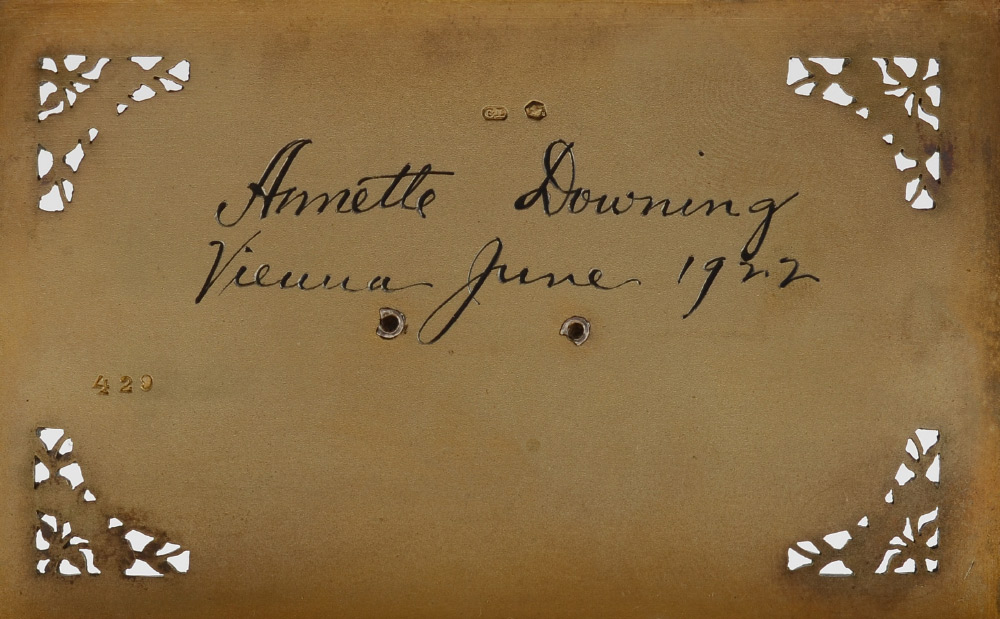 Annette Downing
Vienna June 1922
429